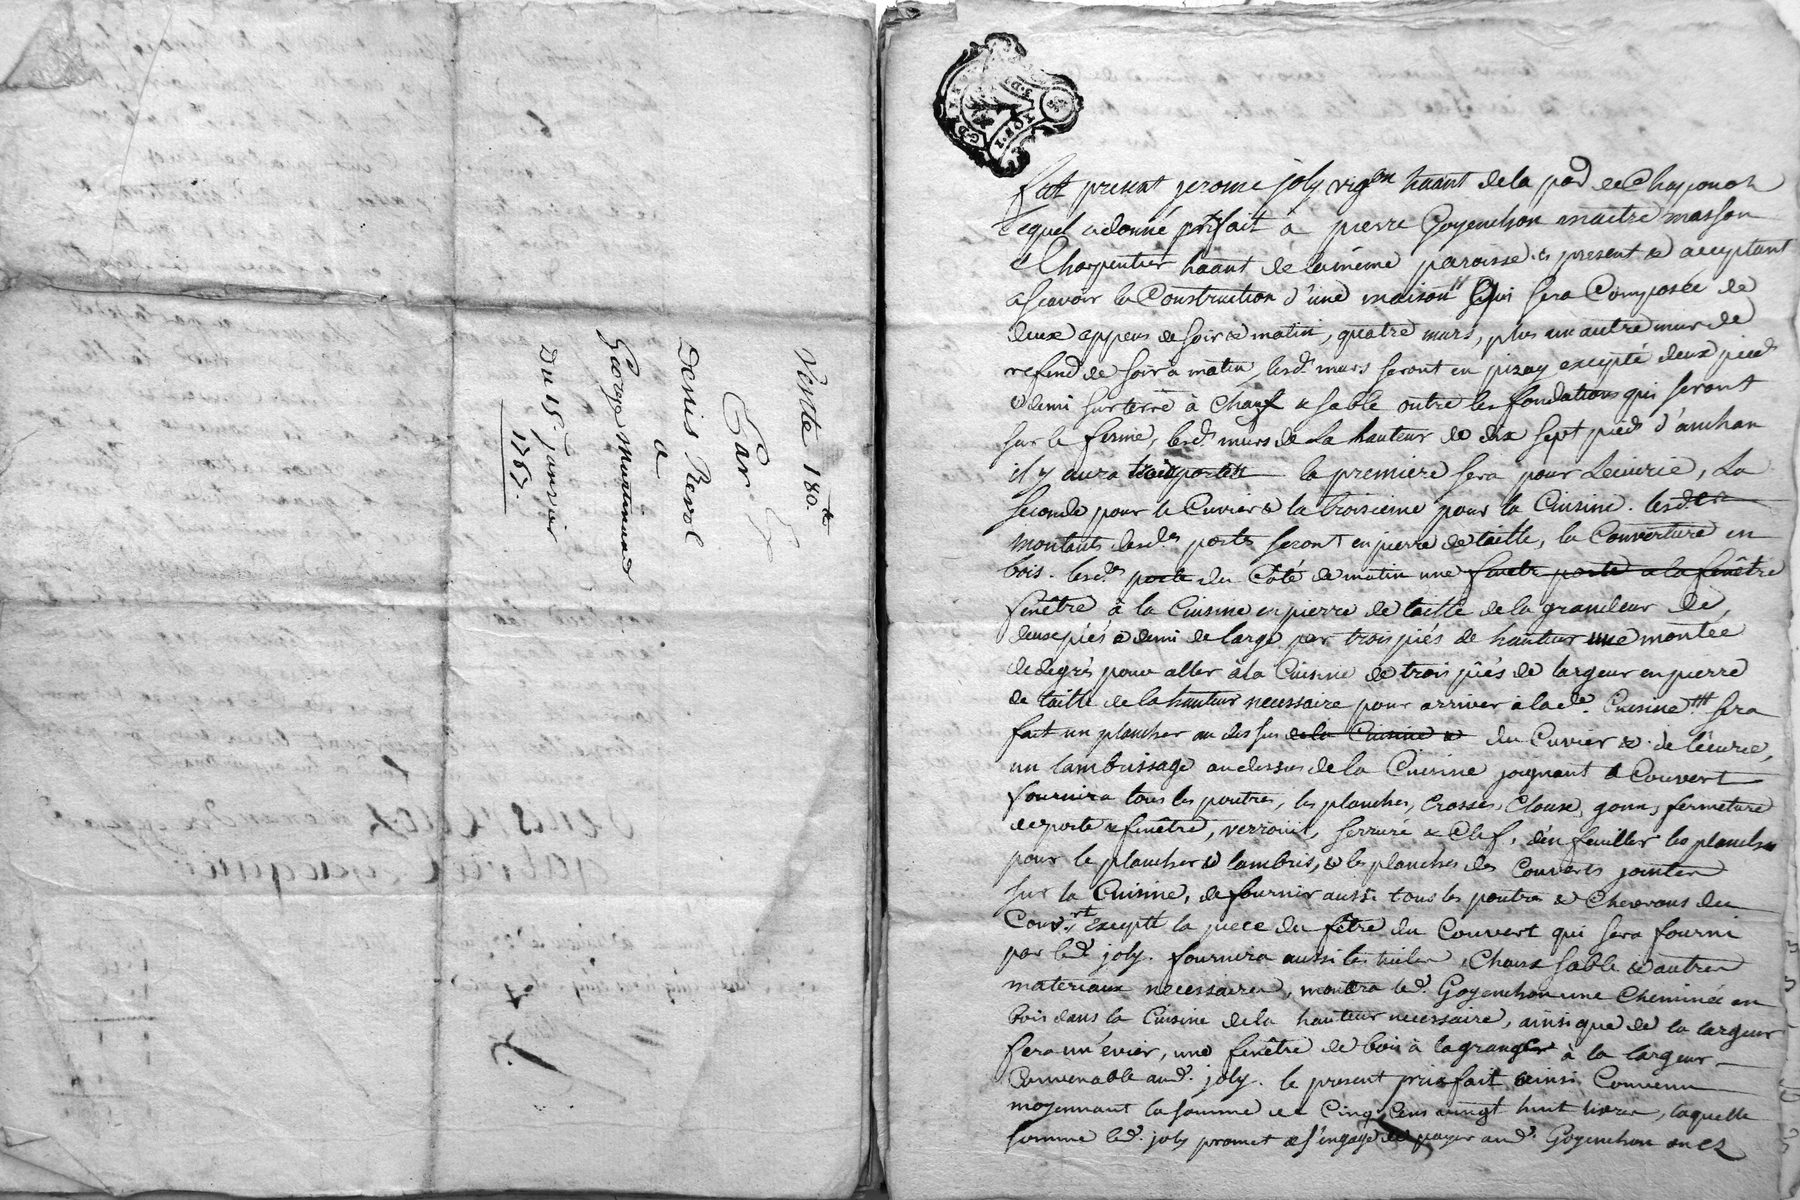 Vente 180.tt
Par
Denis Revol
a
George
Du 15. janvier
1767.
Fut present jerome joly vigon haant de la pad de Chaponoh
lequel a donné prifait à pierre Goyenchon maitre masson
Charpentier haant de la même paroisse present & acceptant
ascavoir la Construction d'une maison Qui sera Composée de
deux appens de soir & matin, quatre murs, plus un autre mur de
refend de soir a matin, lesd. murs seront en pizay excepté deux pieds
& demi sur terre à Chaux & sable outre les fondations qui seront
sur le ferme, lesd. murs de la hauteur de dix sept pieds d'anchan
il y aura trois portes la premiere sera pour Lecuirie, La
seconde pour le Cuvier & la troisieme pour la Cuisine. lesd.
montants desd.es portes seront en pierre de taille, la Couverture en
bois. lesd.es porte du Côté de matin une porte a la fenêtre
fenêtre à la Cuisine en pierre de taille de la grandeur de
deux piés & demi de large par trois piés de hauteur une montée
de degrés pour aller à la Cuisine de trois piés de largeur en pierre
de taille de la hauteur necessaire pour arriver à lade. Cuisine sera
fait un plancher au dessus de la Cuisine & du Cuvier & de l'écurie,
un lambrissage au dessus de la Cuisine joignant le Couvert
fournira tous les poutres, les planches, Crosses, Cloux, gonns, fermeture
de porte & fenêtre, verrouil, serrure & Clef, d'en feuiller les planches
pour le plancher & lambris, & les planches des Couverts jointer
sur la Cuisine, de fournir aussi tous les poutres & Chevrons du
Couv.rt Excepté la piece du fêtre du Couvert qui sera fourni
par led. joly. fournira aussi les tuiles, Chaux sable & autres
materiaux necessaires, montera led. Goyenchon une Cheminée en
bois dans la Cuisine de la hauteur necessaire, ainsi que de la largeur
fera un évier, une fenêtre de bois à la grange à la largeur
Convenable aud. joly. le present prisfait ainsi Convenu
moyennant la somme de Cinq Cens vingt huit livres, laquelle
somme led. joly promet & s'engage de payer aud. Goyenchon